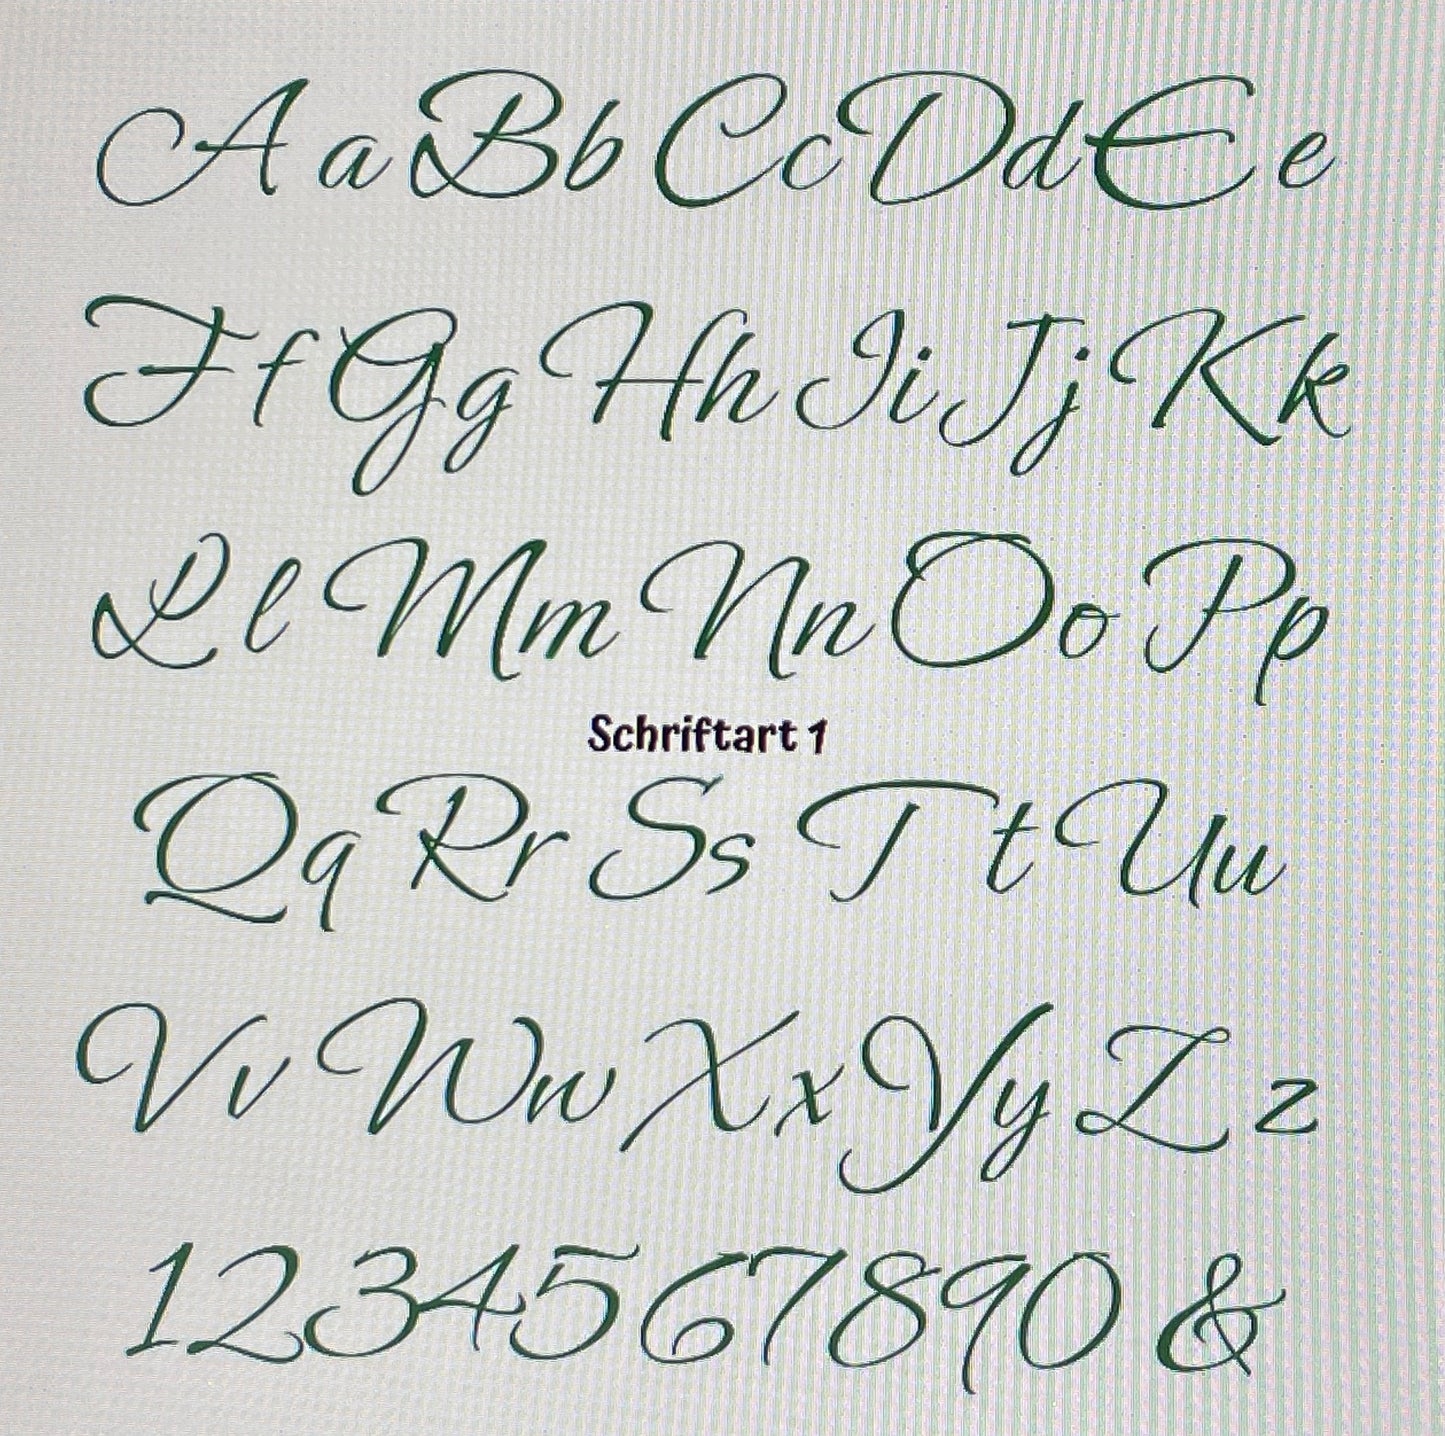 A a B b C c D d E e
F f G g H h I i J j K k
L l M m N n O o P p
Schriftart 1
Q q R r S s T t U u
V v W w X x Y y Z z
1 2 3 4 5 6 7 8 9 0 &